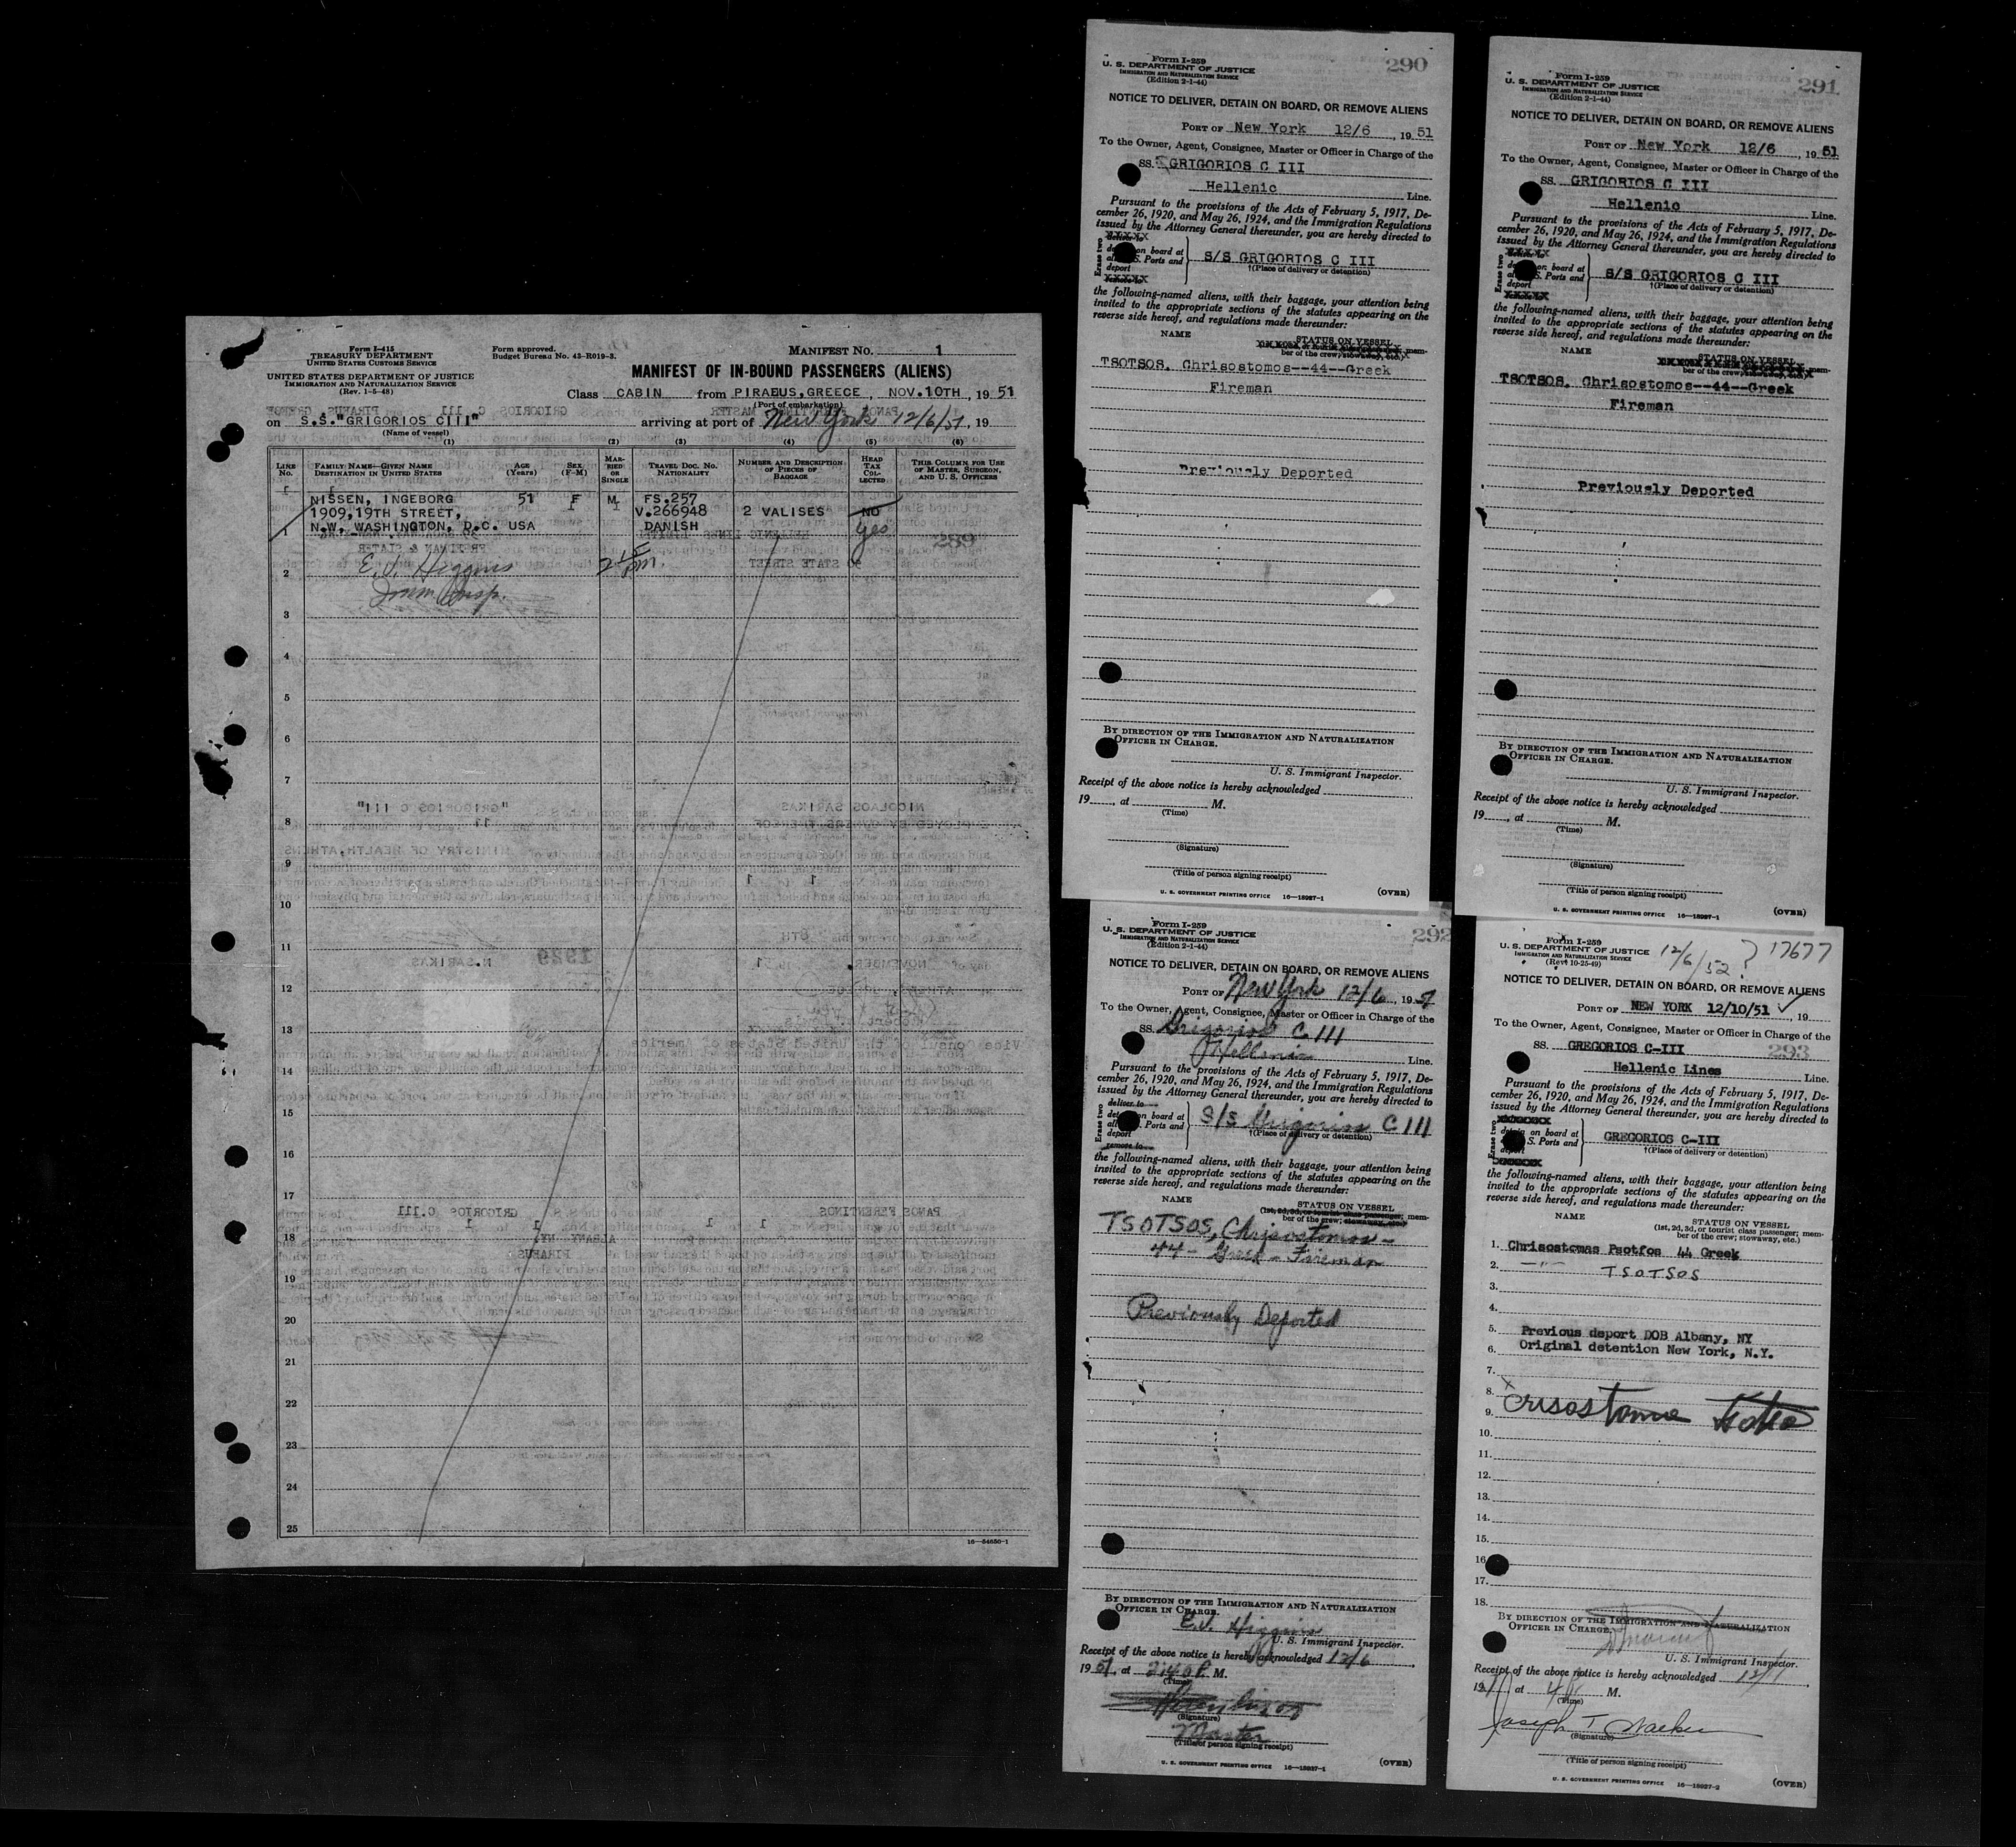 Form I-415
TREASURY DEPARTMENT
UNITED STATES CUSTOMS SERVICE
UNITED STATES DEPARTMENT OF JUSTICE
IMMIGRATION AND NATURALIZATION SERVICE
(Rev. 1-5-48)
Form approved.
Budget Bureau No. 43-R019-3.
MANIFEST No. 1
MANIFEST OF IN-BOUND PASSENGERS (ALIENS)
Class CABIN from PIRAEUS,GREECE, NOV.10TH, 19 51
(Port of embarkation)
on S.S."GRIGORIOS CIII" arriving at port of New York 12/6/51, 19
(Name of vessel)
(1) (2) (3) (4) (5) (6)
LINE No. FAMILY NAME—GIVEN NAME DESTINATION IN UNITED STATES AGE (Years) SEX (F-M) MARRIED OR SINGLE TRAVEL DOC. No. NATIONALITY NUMBER AND DESCRIPTION OF PIECES OF BAGGAGE HEAD TAX COLLECTED THIS COLUMN FOR USE OF MASTER, SURGEON, AND U. S. OFFICERS
NISSEN, INGEBORG 51 F M FS.257
1909,19TH STREET, V.266948 2 VALISES NO
1 N.W. WASHINGTON, D.C. USA DANISH yes
2 E.J. Higgins
Imm Insp.
3
4
5
6
7
8
9
10
11
12
13
14
15
16
17
18
19
20
21
22
23
24
25
16—54650-1
290
Form I-259
U. S. DEPARTMENT OF JUSTICE
IMMIGRATION AND NATURALIZATION SERVICE
(Edition 2-1-44)
NOTICE TO DELIVER, DETAIN ON BOARD, OR REMOVE ALIENS
PORT OF New York 12/6, 19 51
To the Owner, Agent, Consignee, Master or Officer in Charge of the
SS. GRIGORIOS C III
Hellenic Line.
Pursuant to the provisions of the Acts of February 5, 1917, De-
cember 26, 1920, and May 26, 1924, and the Immigration Regulations
issued by the Attorney General thereunder, you are hereby directed to
Erase two
on board at
S. Ports and
deport
S/S GRIGORIOS C III
†(Place of delivery or detention)
the following-named aliens, with their baggage, your attention being
invited to the appropriate sections of the statutes appearing on the
reverse side hereof, and regulations made thereunder:
NAME STATUS ON VESSEL
mem-
ber of the crew;
TSOTSOS, Chrisostomos--44--Greek
Fireman
Previously Deported
BY DIRECTION OF THE IMMIGRATION AND NATURALIZATION
OFFICER IN CHARGE.
U. S. Immigrant Inspector.
Receipt of the above notice is hereby acknowledged
19, at M.
(Time)
(Signature)
(Title of person signing receipt)
U. S. GOVERNMENT PRINTING OFFICE 16—18927-1 (OVER)
291
Form I-259
U. S. DEPARTMENT OF JUSTICE
IMMIGRATION AND NATURALIZATION SERVICE
(Edition 2-1-44)
NOTICE TO DELIVER, DETAIN ON BOARD, OR REMOVE ALIENS
PORT OF New York 12/6, 19 51
To the Owner, Agent, Consignee, Master or Officer in Charge of the
SS. GRIGORIOS C III
Hellenic Line.
Pursuant to the provisions of the Acts of February 5, 1917, De-
cember 26, 1920, and May 26, 1924, and the Immigration Regulations
issued by the Attorney General thereunder, you are hereby directed to
Erase two
on board at
S. Ports and
deport
S/S GRIGORIOS C III
†(Place of delivery or detention)
the following-named aliens, with their baggage, your attention being
invited to the appropriate sections of the statutes appearing on the
reverse side hereof, and regulations made thereunder:
NAME STATUS ON VESSEL
mem-
ber of the crew;
TSOTSOS, Chrisostomos--44--Greek
Fireman
Previously Deported
BY DIRECTION OF THE IMMIGRATION AND NATURALIZATION
OFFICER IN CHARGE.
U. S. Immigrant Inspector.
Receipt of the above notice is hereby acknowledged
19, at M.
(Time)
(Signature)
(Title of person signing receipt)
U. S. GOVERNMENT PRINTING OFFICE 16—18927-1 (OVER)
292
Form I-259
U. S. DEPARTMENT OF JUSTICE
IMMIGRATION AND NATURALIZATION SERVICE
(Edition 2-1-44)
NOTICE TO DELIVER, DETAIN ON BOARD, OR REMOVE ALIENS
PORT OF New York 12/6, 19 51
To the Owner, Agent, Consignee, Master or Officer in Charge of the
SS. Grigorios C III
Hellenic Line.
Pursuant to the provisions of the Acts of February 5, 1917, De-
cember 26, 1920, and May 26, 1924, and the Immigration Regulations
issued by the Attorney General thereunder, you are hereby directed to
Erase two
deliver to
on board at
Ports and
deport
remove to
S/S Grigorios C III
†(Place of delivery or detention)
the following-named aliens, with their baggage, your attention being
invited to the appropriate sections of the statutes appearing on the
reverse side hereof, and regulations made thereunder:
NAME STATUS ON VESSEL
(1st, 2d, 3d, or tourist class passenger; mem-
ber of the crew; stowaway, etc.)
TSOTSOS, Chrisostomos -
44 - Greek - Fireman
Previously Deported
BY DIRECTION OF THE IMMIGRATION AND NATURALIZATION
OFFICER IN CHARGE.
E.J. Higgins
U. S. Immigrant Inspector.
Receipt of the above notice is hereby acknowledged 12/6
19 51, at 2:40 P. M.
(Time)
(Signature)
Master
(Title of person signing receipt)
U. S. GOVERNMENT PRINTING OFFICE 16—18927-1 (OVER)
Form I-259
U. S. DEPARTMENT OF JUSTICE
IMMIGRATION AND NATURALIZATION SERVICE
(Rev. 10-25-49)
12/6/52 ? 17677
NOTICE TO DELIVER, DETAIN ON BOARD, OR REMOVE ALIENS
PORT OF NEW YORK 12/10/51, 19
To the Owner, Agent, Consignee, Master or Officer in Charge of the
SS. GREGORIOS C-III 293
Hellenic Lines Line.
Pursuant to the provisions of the Acts of February 5, 1917, De-
cember 26, 1920, and May 26, 1924, and the Immigration Regulations
issued by the Attorney General thereunder, you are hereby directed to
Erase two
detain on board at
S. Ports and
deport
GREGORIOS C-III
†(Place of delivery or detention)
the following-named aliens, with their baggage, your attention being
invited to the appropriate sections of the statutes appearing on the
reverse side hereof, and regulations made thereunder:
NAME STATUS ON VESSEL
(1st, 2d, 3d, or tourist class passenger; mem-
ber of the crew; stowaway, etc.)
1. Chrisostomas Psotfos 44 Greek
2. —"— TSOTSOS
3.
4.
5. Previous deport DOB Albany, NY
6. Original detention New York, N.Y.
7.
8. x
9.
10.
11.
12.
13.
14.
15.
16.
17.
18.
BY DIRECTION OF THE IMMIGRATION AND NATURALIZATION
OFFICER IN CHARGE.
U. S. Immigrant Inspector.
Receipt of the above notice is hereby acknowledged
19, at M.
(Time)
Joseph T Walker
(Signature)
(Title of person signing receipt)
U. S. GOVERNMENT PRINTING OFFICE 16—18927-2 (OVER)